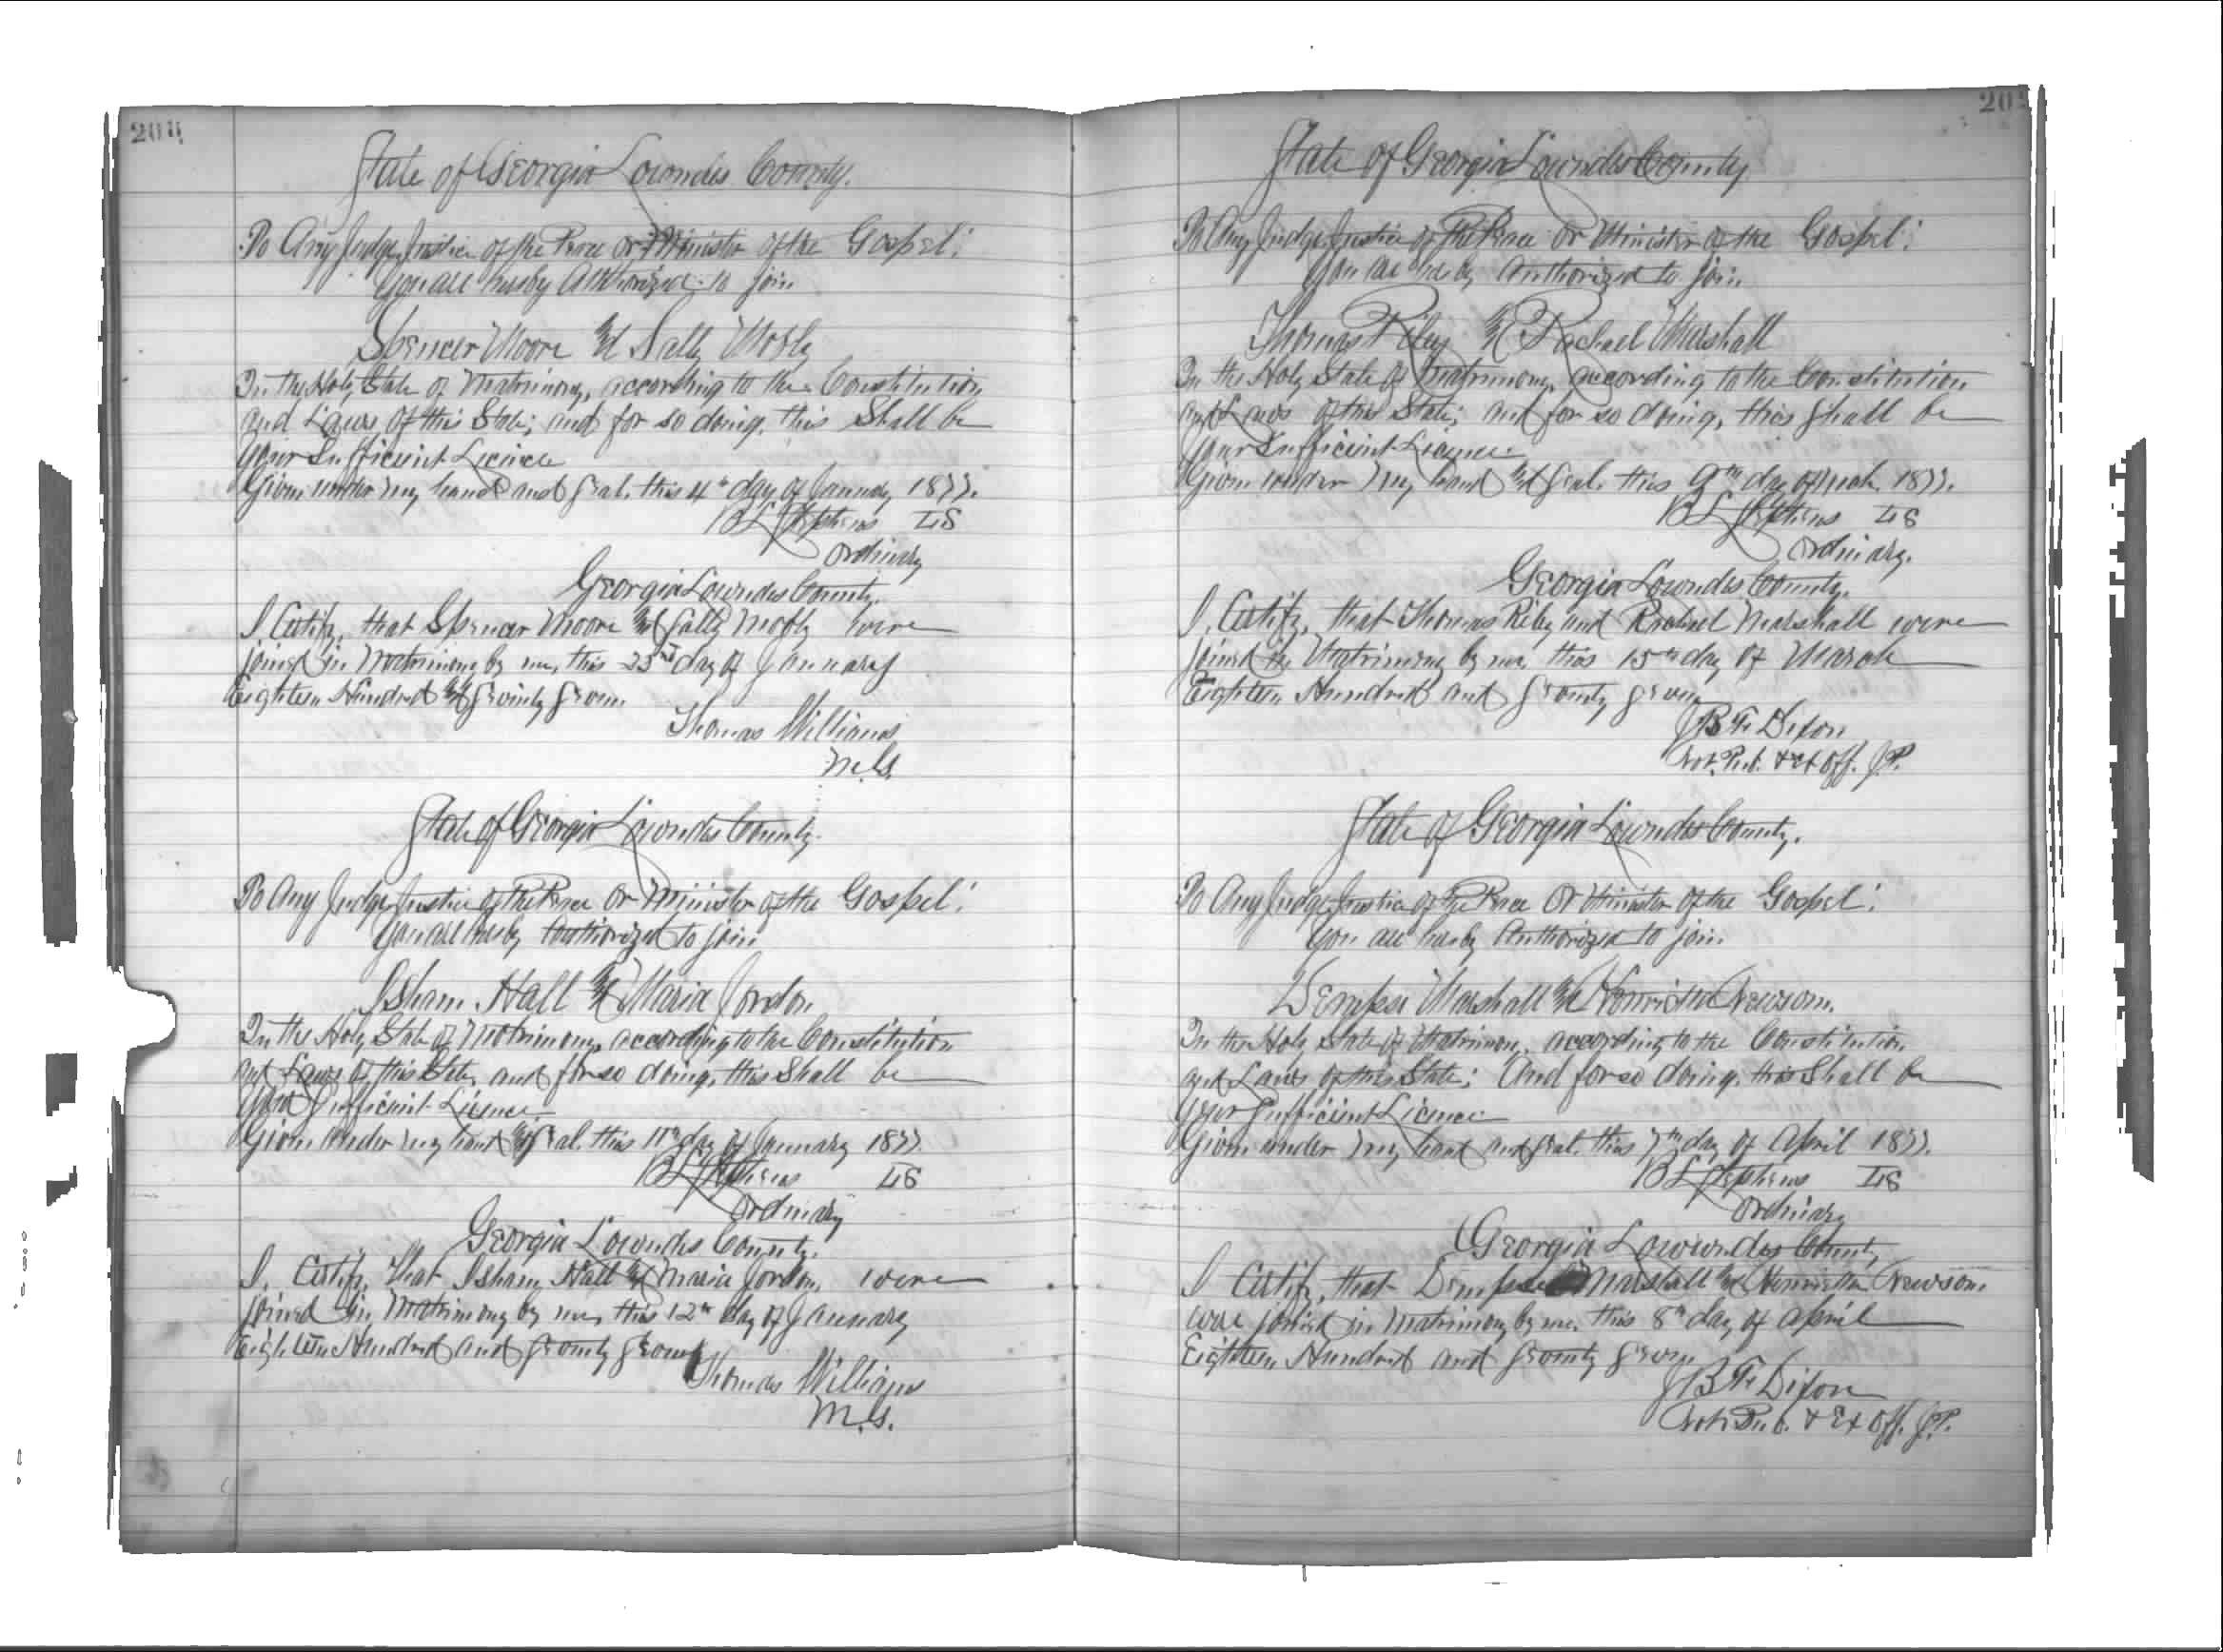 State of Georgia Lowndes County.
To Any Judge, Justice of the Peace or Minister of the Gospel:
You are hereby Authorized to join
Spencer Moore and Sally Mosly
In the Holy State of Matrimony, according to the Constitution
and Laws of this State; and for so doing, this Shall be
your Sufficient Licence
Given under my hand and Seal, this 4th day of January 1877.
B L Stephens LS
Ordinary
Georgia Lowndes County.
I Certify, that Spencer Moore and Sally Mosly were
joined in Matrimony by me, this 23rd day of January
Eighteen Hundred and Seventy Seven.
Thomas Williams
M.G.
State of Georgia Lowndes County.
To Any Judge, Justice of the Peace Or Minister of the Gospel:
You are hereby Authorized to join
Isham Hall and Maria Jordon
In the Holy State of Matrimony, according to the Constitution
and Laws of this State, and for so doing, this Shall be
Your Sufficient Licence
Given under my hand and Seal, this 11th day of January 1877.
B L Stephens LS
Ordinary
Georgia Lowndes County.
I, Certify, that Isham Hall and Maria Jordon, were
joined in Matrimony by me, this 12th day of January
Eighteen Hundred and Seventy Seven
Thomas Williams
M.G.
State of Georgia Lowndes County
To Any Judge, Justice of the Peace Or Minister of the Gospel:
You are hereby Authorized to join
Thomas Riley and Rachael Marshall
In the Holy State of Matrimony, according to the Constitution
and Laws of this State; and for so doing, this Shall be
Your Sufficient Licence
Given under my hand and Seal, this 9th day of March 1877.
B L Stephens LS
Ordinary.
Georgia Lowndes County.
I, Certify, that Thomas Riley and Rachael Marshall were
joined in Matrimony by me, this 15th day of March
Eighteen Hundred and Seventy Seven
B F Dixon
Not. Pub. & Ex Off. J.P.
State of Georgia Lowndes County.
To Any Judge, Justice of the Peace Or Minister of the Gospel:
You are hereby Authorized to join
Marshall and Henrietta Newsom.
In the Holy State of Matrimony, according to the Constitution
and Laws of this State; And for so doing, this Shall be
Your Sufficient Licence
Given under my hand and Seal, this 7th day of April 1877.
B L Stephens LS
Ordinary
Georgia Lowndes County
I Certify, that Marshall and Henrietta Newsom
were joined in Matrimony by me, this 8th day of April
Eighteen Hundred and Seventy Seven
B F Dixon
Not. Pub. & Ex Off. J.P.